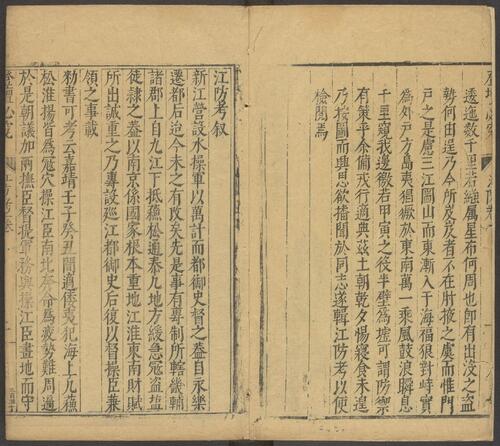 逶迤数千里若經属星布何周也卽有出没之盗
勢何由逞乃今所岌岌者不在肘掖之虞而惟門
戸之是慮三江圌山而東漸入于海福狼對峙實
為外戸方島夷猖獗於東南萬一乘風鼓浪瞬息
千里窺我邊徼若甲寅之後半壁為墟可謂防禦
有策乎余備戎行適典茲土朝乾夕惕寢食未遑
乃按圖而興思欲播聞於同志遂輯江防考以便
檢閱焉
江防考叙
新江營設水操軍以萬計而都御史督之葢自永樂
遷都后迨今未之有改矣先是事有專制所轄畿輔
諸郡上自九江下抵蘓松通泰凡地方緩急宼盗塩
徒隷之葢以南京係國家根本重地江淮東南財賦
所出誠重之乃專設巡江都御史后復以督操臣兼
領之事載
勅書可考云嘉靖壬子癸丑間適倭夷犯海上凡蘓
松淮揚皆為宼穴操江臣南北奔命為疲勢難周遍
於是朝議加兩撫臣督提軍務與操江臣畫地而守
登壇必究